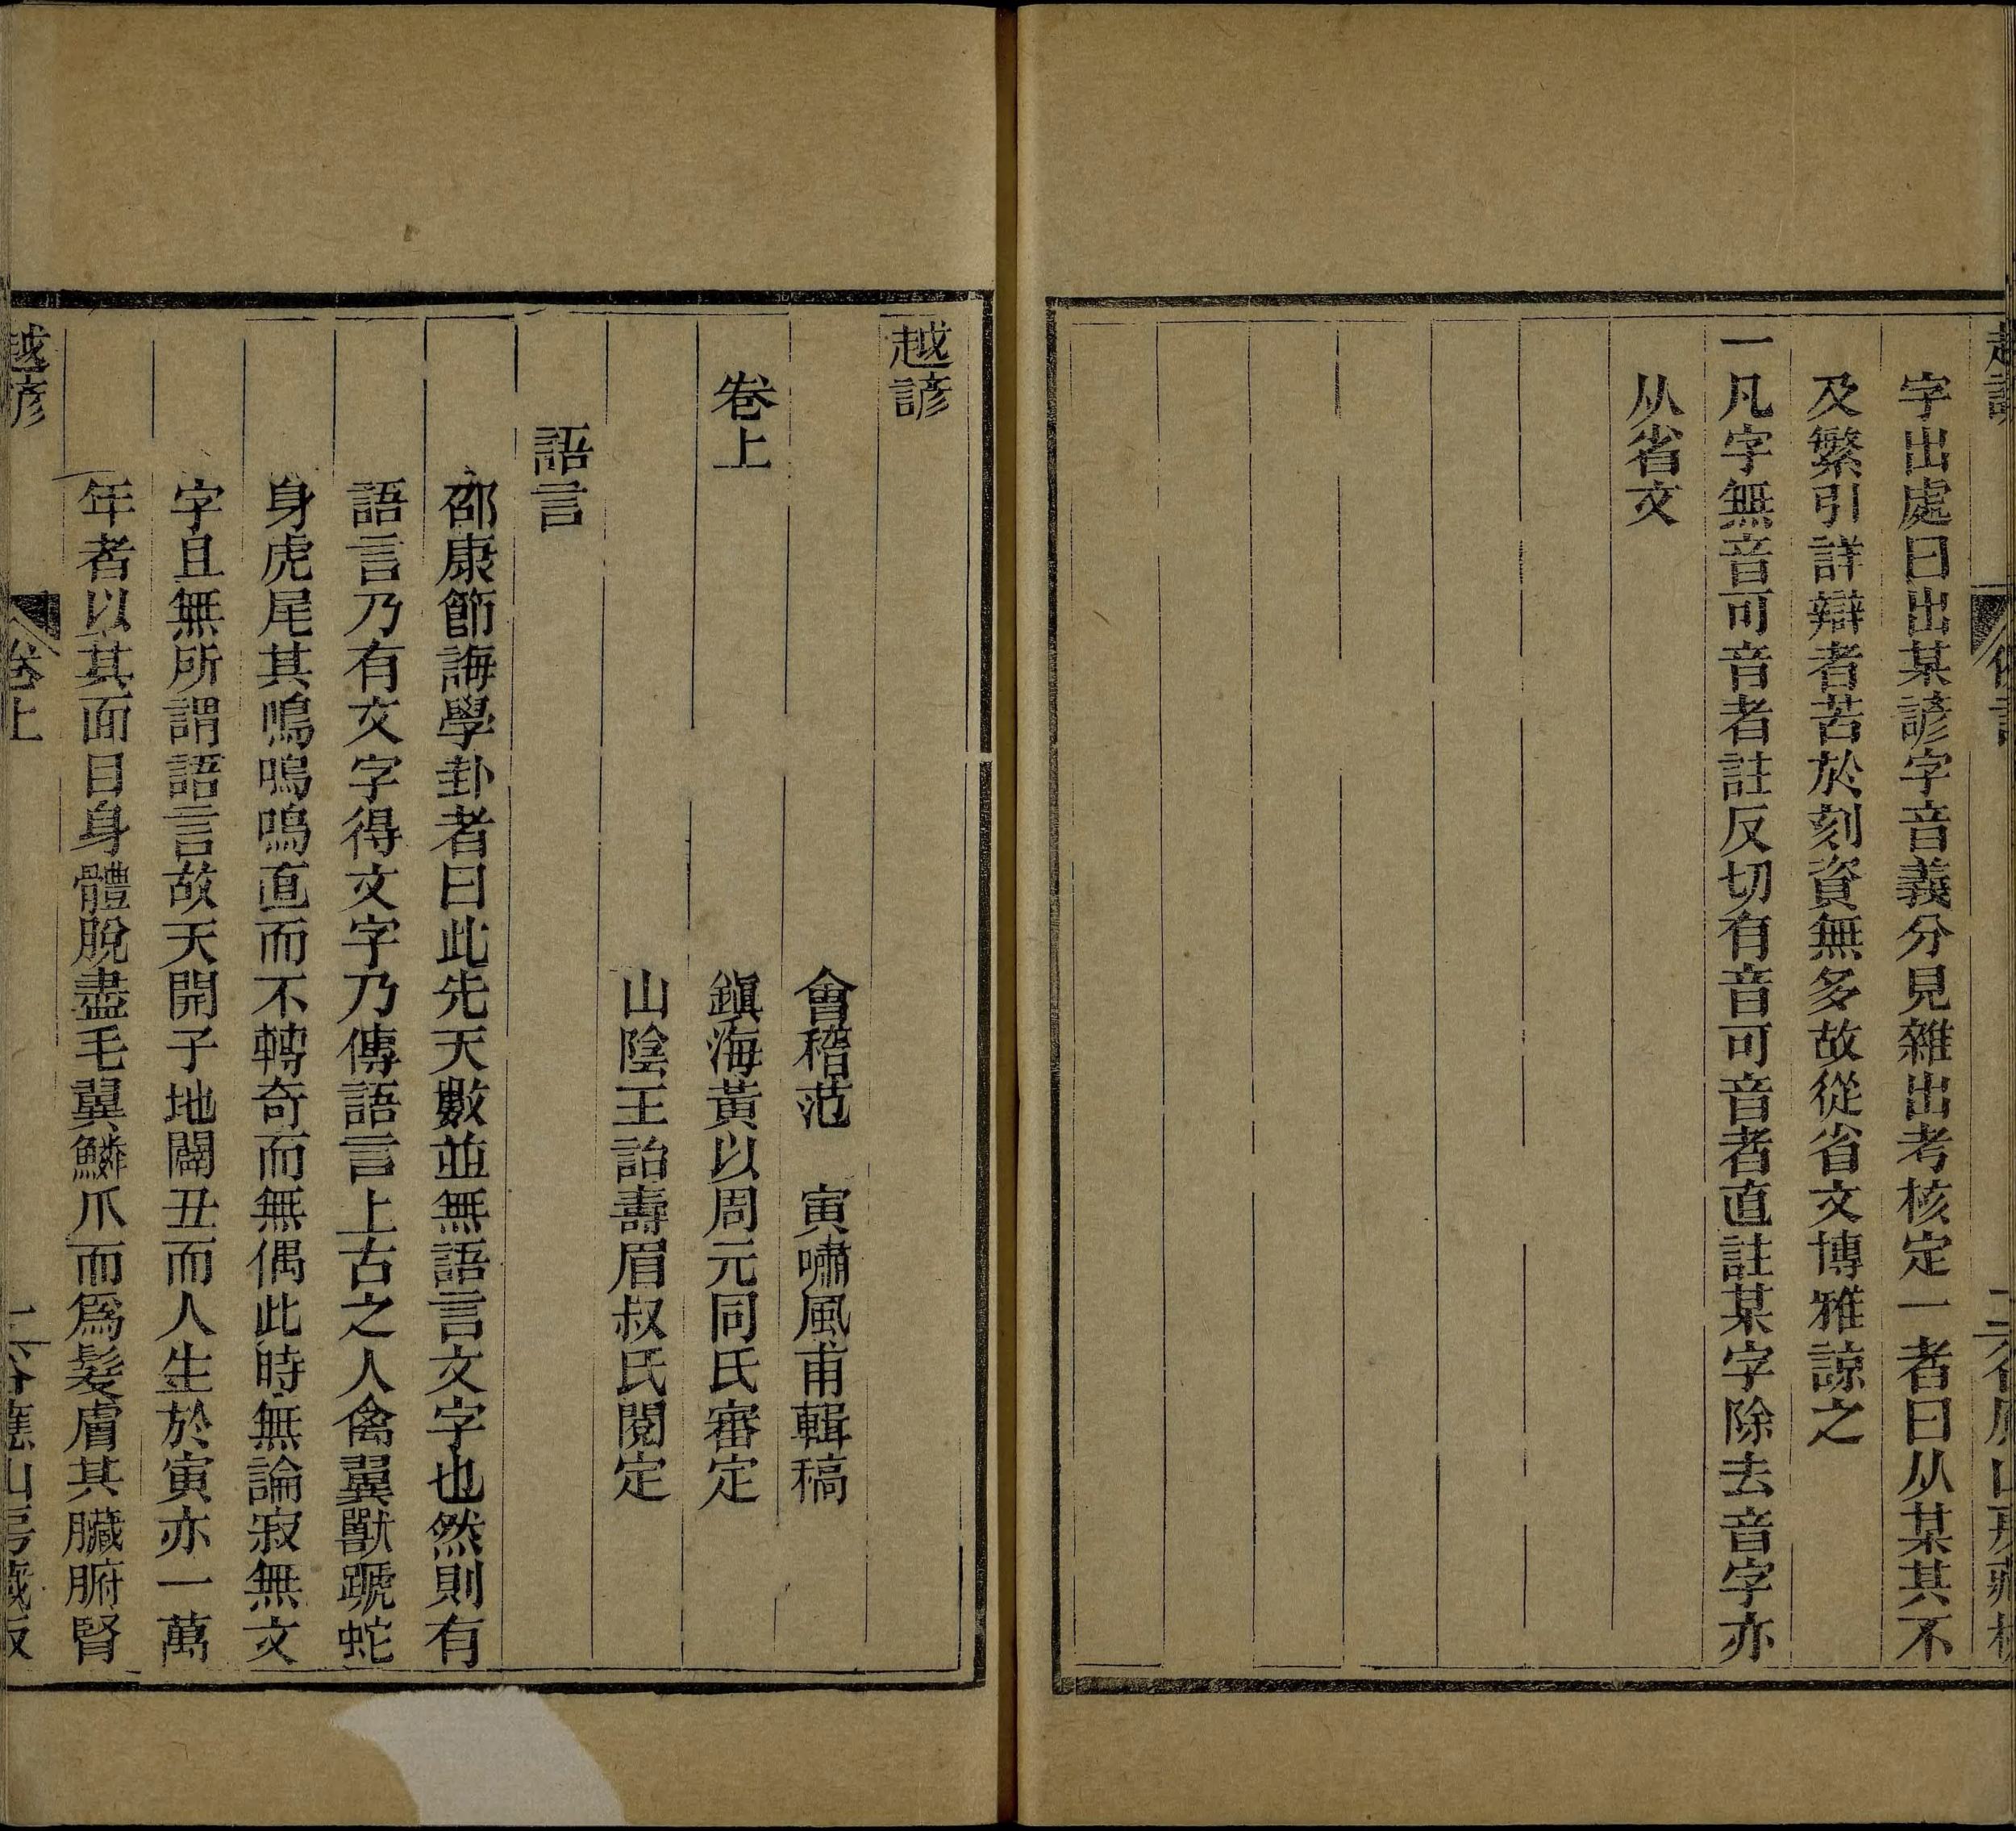 字出處曰出某諺字音義分見雜出考核定一者曰从某其不
及繁引詳辯者苦於刻資無多故從省文博雅諒之
一凡字無音可音者註反切有音可音者直註某字除去音字亦
从省文
越諺
會稽范　寅嘯風甫輯稿
卷上　鎮海黃以周元同氏審定
山陰王詒壽眉叔氏閱定
語言
邵康節誨學卦者曰此先天數並無語言文字也然則有
語言乃有文字得文字乃傳語言上古之人禽翼獸蹏蛇
身虎尾其鳴嗚嗚直而不轉奇而無偶此時無論寂無文
字且無所謂語言故天開子地闢丑而人生於寅亦一萬
年者以其面目身體脫盡毛翼鱗爪而爲髮膚其臟腑腎
越諺　卷上　一　谷應山房藏版